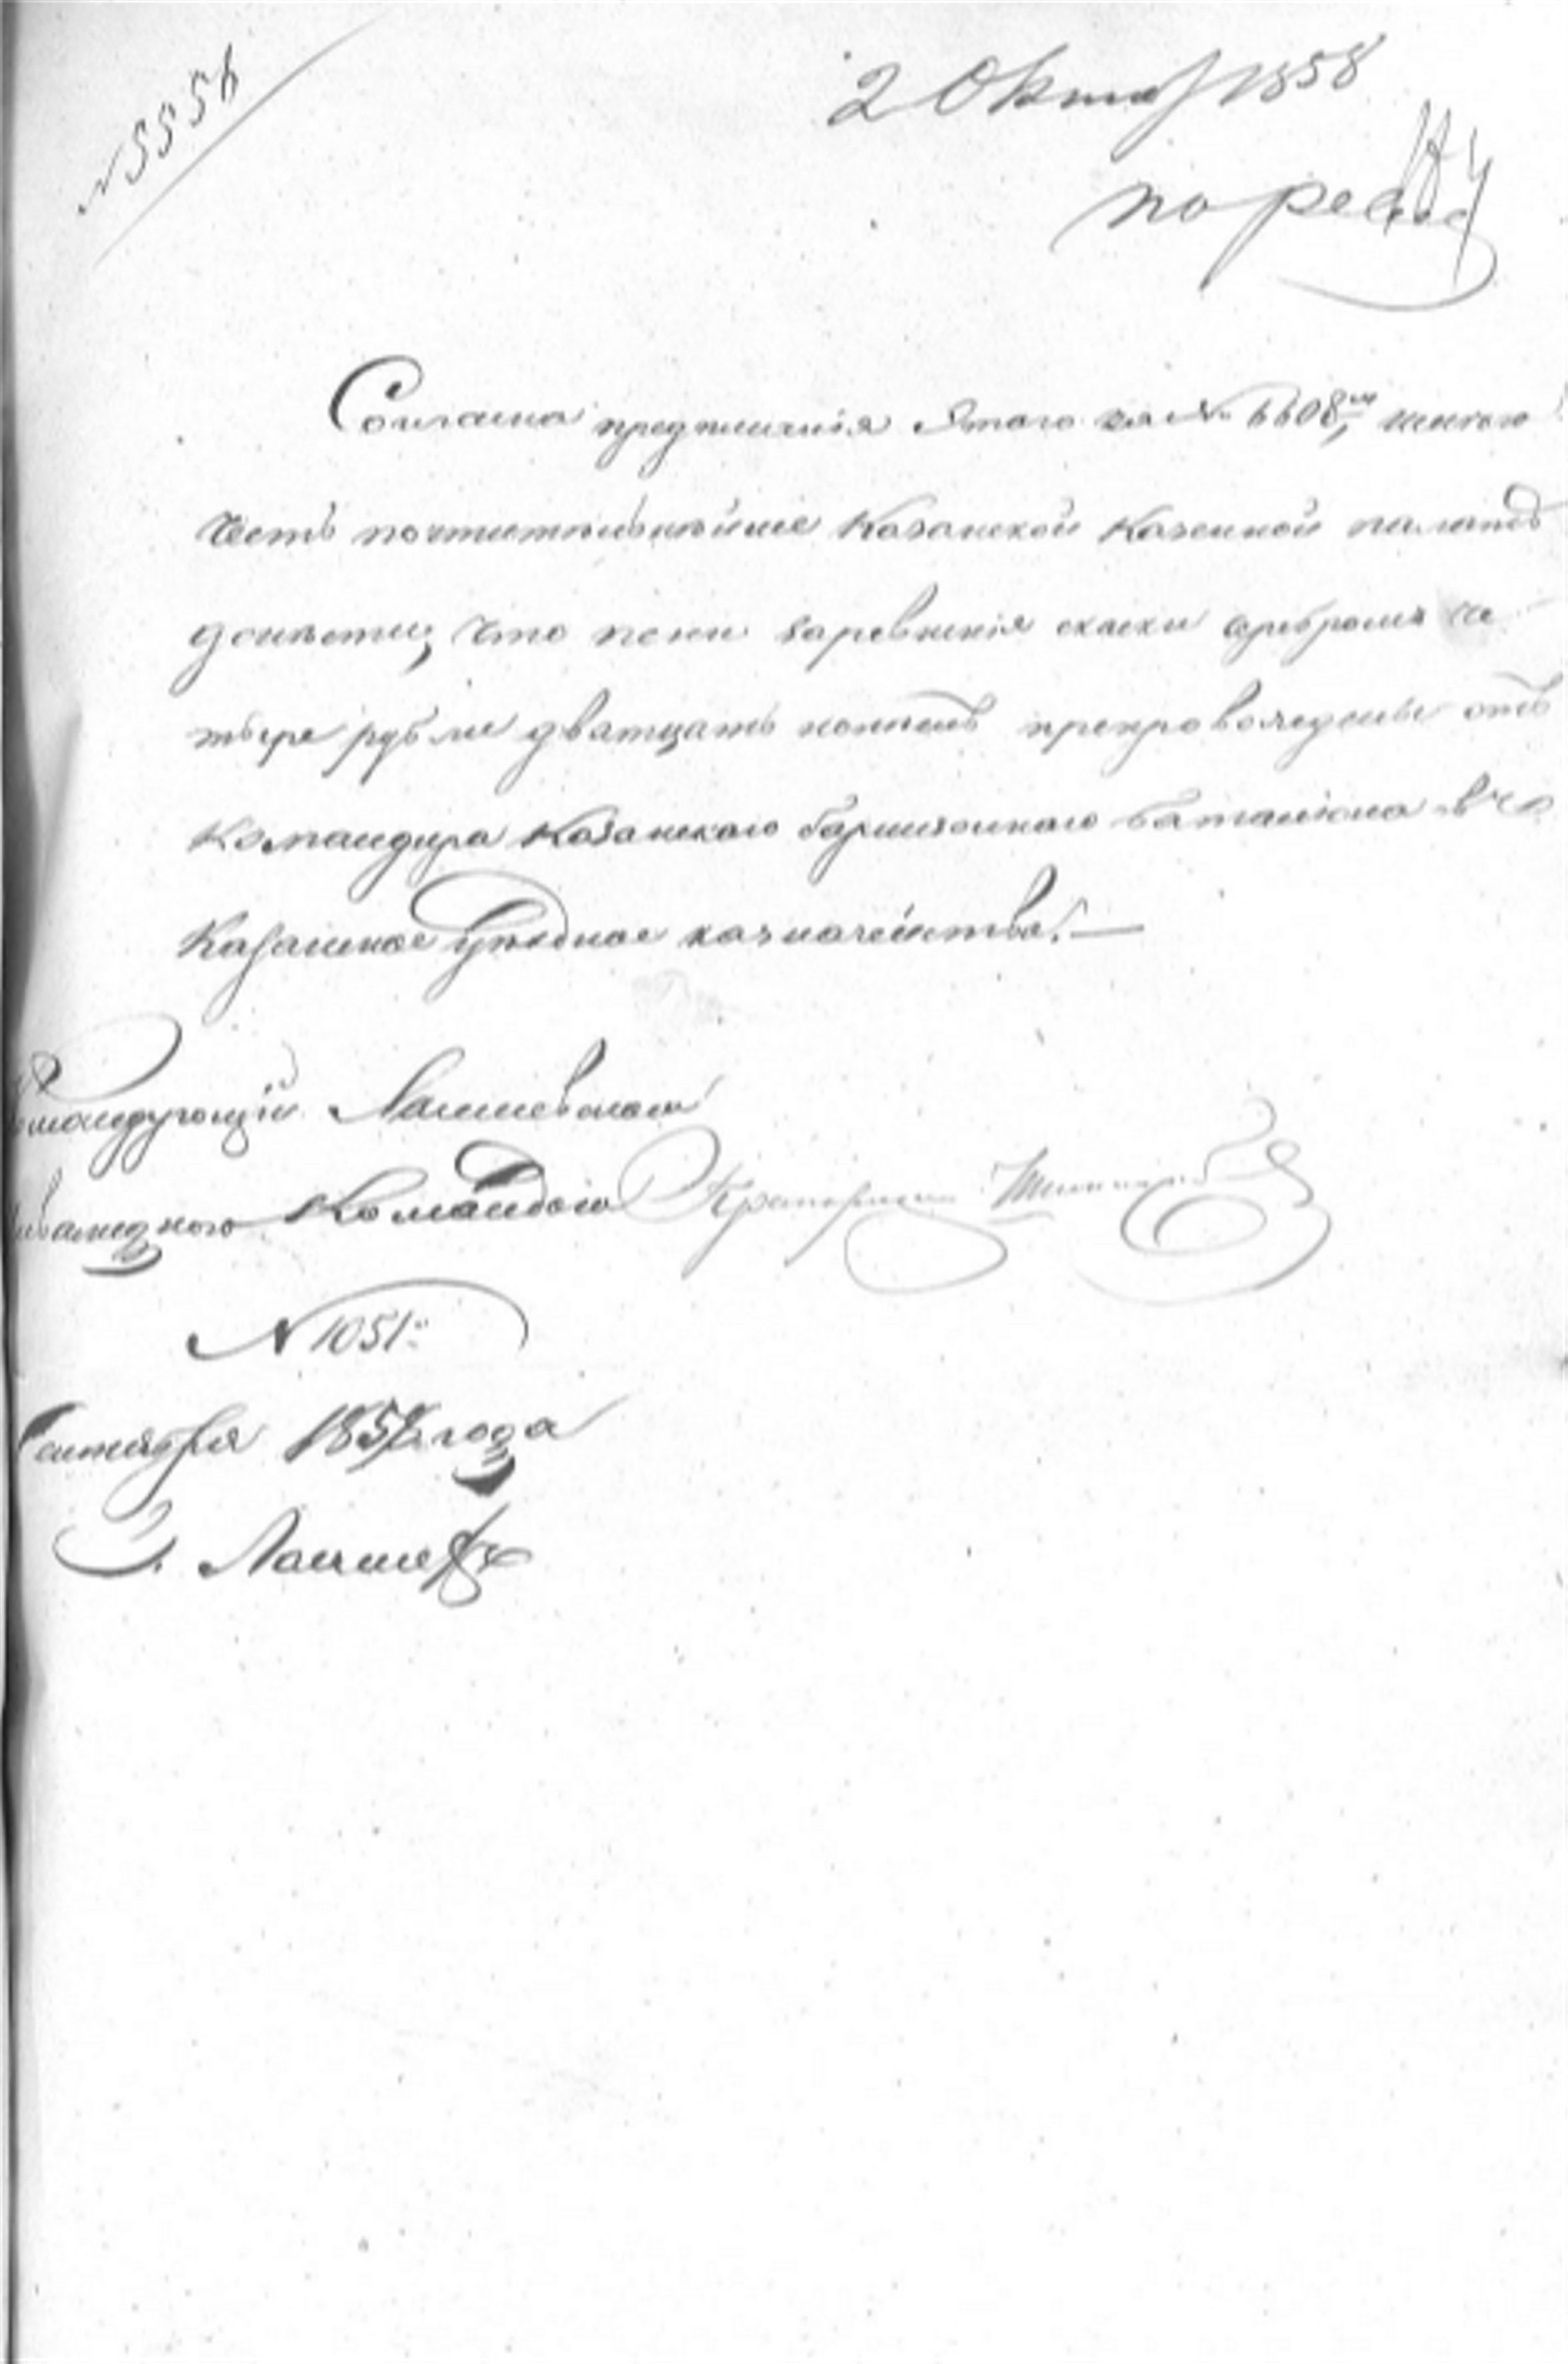 № 5556
2 Октяб 1858
по рев
Согласно предписанія этаго за № 6608м, имѣю
честь почтительнѣйше Казанской Казенной палатѣ
донѣсти, что пени заревизкія скаски серебромъ че
тыре рубли дватцать копѣекъ препровождены отъ
Командира Казанскаго Гарнизоннаго баталіона въ
Казанское Уѣздное казначейство.—
омандующій Лаишевскою
нвалидною Командою Прапорщикъ
№ 1051й
Сентября 1858 года
Г. Лаишевъ